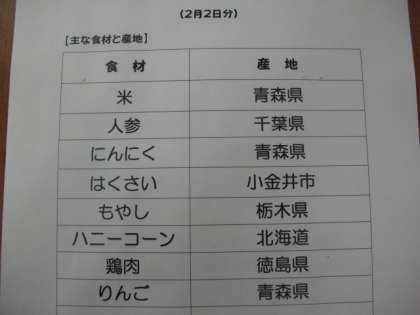 (2月2日分)
【主な食材と産地】
食 材 産 地
米 青森県
人参 千葉県
にんにく 青森県
はくさい 小金井市
もやし 栃木県
ハニーコーン 北海道
鶏肉 徳島県
りんご 青森県